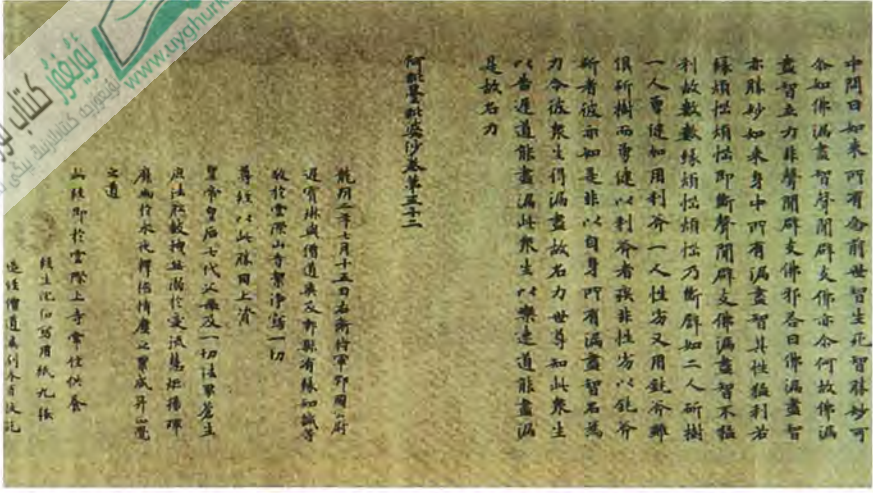 中問曰如來所有念前世智生死智勝妙可
尒如佛漏盡智聲聞辟支佛亦尒何故佛漏
盡智立力非聲聞辟支佛耶答曰佛漏盡智
亦勝妙如來身中所有漏盡智其性猛利若
緣煩惱煩惱即斷聲聞辟支佛漏盡智不猛
利故數數緣煩惱煩惱乃斷辟如二人斫樹
一人勇健加用利斧一人性劣又用鈍斧雖
俱斫樹而勇健以利斧者疾非性劣以鈍斧
斫者彼亦如是非以自身所有漏盡智名為
力令彼衆生得漏盡故名力世尊知此衆生
以苦遲道能盡漏此衆生以樂速道能盡漏
是故名力
阿毗曇毗婆沙卷第五十二
龍朔二年七月十五日右衛將軍鄂國公尉
遲寶琳與僧道爽及鄠縣有緣知識等
敬於雲際山寺潔淨寫一切
尊經以此勝因上資
皇帝皇后七代父母及一切法界蒼生
庶法船鼓枻無溺於愛流慧炬揚暉
靡幽於永夜釋擔情塵之累咸昇正覺
之道
此經即於雲際上寺常住供養
經生沈弘寫用紙九張
造經僧道爽別本再校訖
www.uyghurk